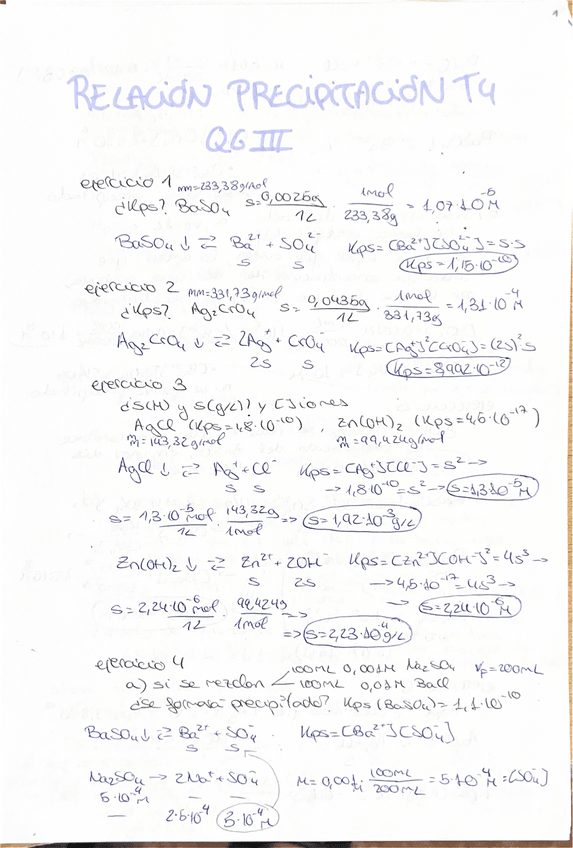 1
RELACIÓN PRECIPITACIÓN T4
QG III
ejercicio 1 mm=233,38g/mol
¿Kps? BaSO₄ s= 0,0025g/1L · 1mol/233,38g = 1,07·10⁻⁵ M
BaSO₄ ↓ ⇄ Ba²⁺ + SO₄²⁻ Kps=[Ba²⁺][SO₄²⁻]=s·s
s s Kps=1,15·10⁻¹⁰
ejercicio 2 mm=331,73g/mol
¿Kps? Ag₂CrO₄ s= 0,0435g/1L · 1mol/331,73g = 1,31·10⁻⁴ M
Ag₂CrO₄ ↓ ⇄ 2Ag⁺ + CrO₄⁼ Kps=[Ag⁺]²[CrO₄⁼]=(2s)²s
2s s Kps=8,992·10⁻¹²
ejercicio 3
¿s(M) y s(g/L)? y []iones
AgCl (Kps=1,8·10⁻¹⁰) , Zn(OH)₂ (Kps=4,5·10⁻¹⁷)
m̄=143,32g/mol m̄=99,424g/mol
AgCl ↓ ⇄ Ag⁺ + Cl⁻ Kps=[Ag⁺][Cl⁻]=s² →
s s → 1,8·10⁻¹⁰=s² → s=1,3·10⁻⁵ M
s= 1,3·10⁻⁵ mol/1L · 143,32g/1mol => s=1,92·10⁻³ g/L
Zn(OH)₂ ↓ ⇄ Zn²⁺ + 2OH⁻ Kps=[Zn²⁺][OH⁻]²=4s³ →
s 2s → 4,5·10⁻¹⁷=4s³ →
→ s=2,24·10⁻⁶ M
s= 2,24·10⁻⁶ mol/1L · 99,424g/1mol =>
=> s=2,23·10⁻⁴ g/L
ejercicio 4
100mL 0,001M Na₂SO₄ Vf=200mL
a) si se mezclan < 100mL 0,01M BaCl
¿se formará precipitado? Kps (BaSO₄)=1,1·10⁻¹⁰
BaSO₄ ↓ ⇄ Ba²⁺ + SO₄⁼ Kps=[Ba²⁺][SO₄⁼]
s s
Na₂SO₄ → 2Na⁺ + SO₄⁼ M=0,001 · 100mL/200mL = 5·10⁻⁴ M =[SO₄⁼]
5·10⁻⁴ M — —
— 2·5·10⁻⁴ 5·10⁻⁴ M